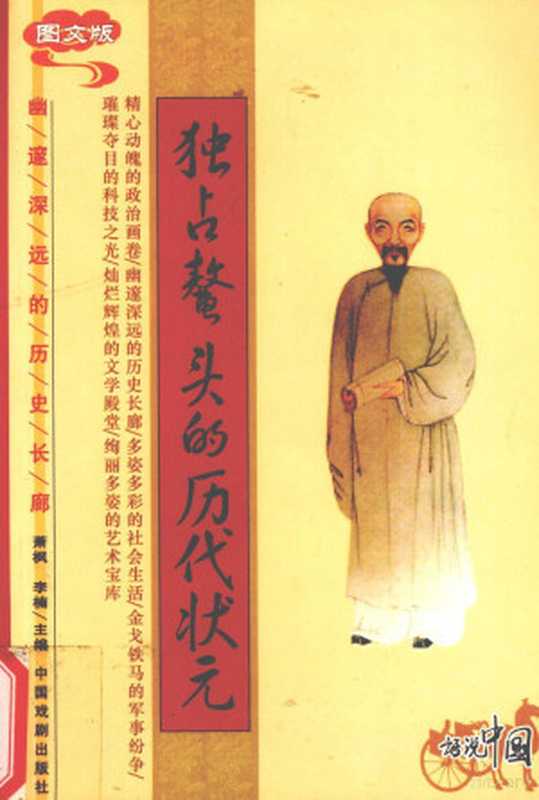 图文版
幽/邃/深/远/的/历/史/长/廊
萧枫 李楠/主编 中国戏剧出版社
独占鳌头的历代状元
精心动魄的政治画卷/幽邃深远的历史长廊/多姿多彩的社会生活/金戈铁马的军事纷争/
璀璨夺目的科技之光/灿烂辉煌的文学殿堂/绚丽多姿的艺术宝库
话说中国